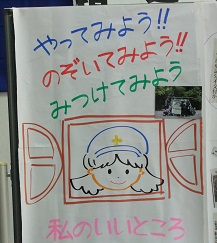 やってみよう!!
のぞいてみよう!!
みつけてみよう
私のいいところ